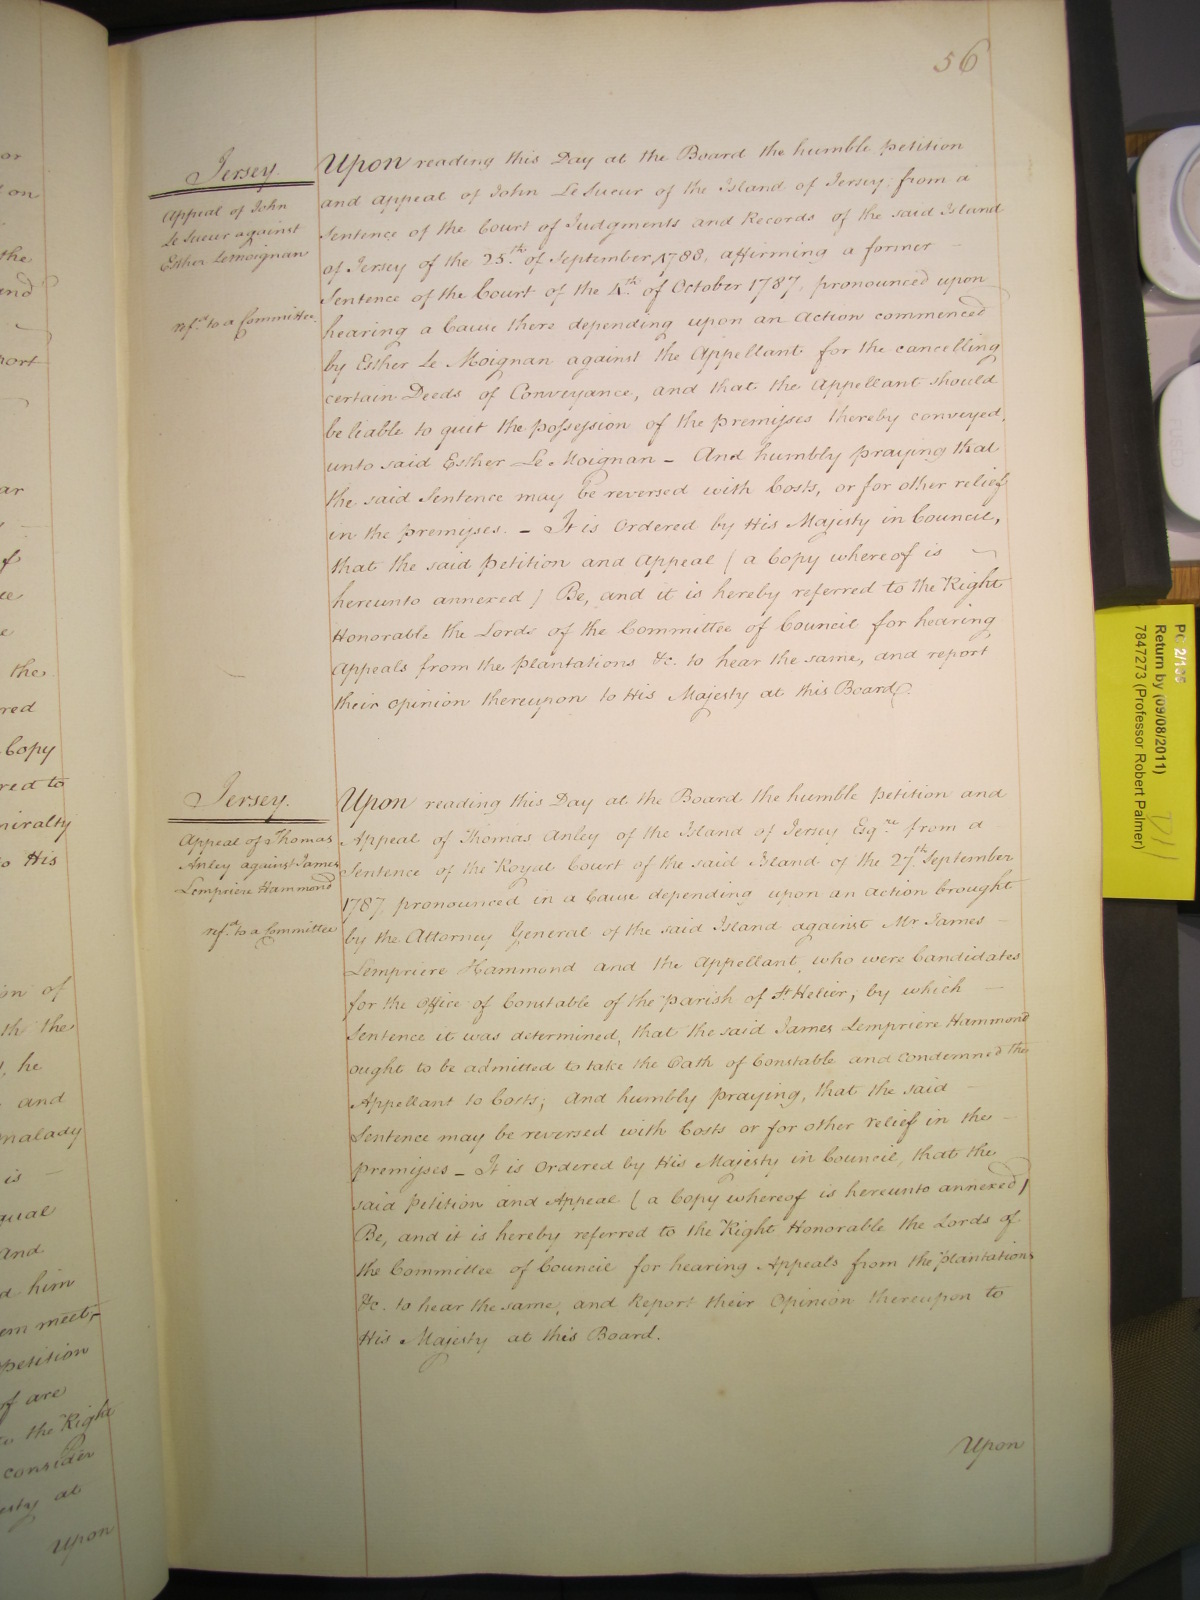 56
Jersey.
Appeal of John
Le Sueur against
Esther Lemoignan
refd. to a Committee.
Upon reading this Day at the Board the humble Petition
and Appeal of John Le Sueur of the Island of Jersey; from a
Sentence of the Court of Judgments and Records of the said Island
of Jersey of the 25th of September 1788, affirming a former —
Sentence of the Court of the 4th of October 1787, pronounced upon
hearing a Cause there depending upon an Action commenced
by Esther Le Moignan against the Appellant for the cancelling
certain Deeds of Conveyance, and that the Appellant should
be liable to quit the possession of the premisses thereby conveyed,
unto said Esther Le Moignan — And humbly praying that
the said Sentence may be reversed with Costs, or for other relief
in the premisses. — It is Ordered by His Majesty in Council,
that the said Petition and Appeal ( a Copy whereof is
hereunto annexed ) Be, and it is hereby referred to the Right
Honorable the Lords of the Committee of Council for hearing
Appeals from the plantations &c. to hear the same, and report
their opinion thereupon to His Majesty at this Board.
Jersey.
Appeal of Thomas
Anley against James
Lempriere Hammond
refd. to a Committee
Upon reading this Day at the Board the humble Petition and
Appeal of Thomas Anley of the Island of Jersey Esqre. from a
Sentence of the Royal Court of the said Island of the 27th September
1787, pronounced in a Cause depending upon an Action brought
by the Attorney General of the said Island against Mr. James —
Lempriere Hammond and the Appellant, who were Candidates
for the Office of Constable of the Parish of St. Helier; by which —
Sentence it was determined, that the said James Lempriere Hammond
ought to be admitted to take the Oath of Constable and condemned the
Appellant to Costs; And humbly praying, that the said —
Sentence may be reversed with Costs or for other relief in the —
premisses — It is Ordered by His Majesty in Council, that the
said Petition and Appeal ( a Copy whereof is hereunto annexed )
Be, and it is hereby referred to the Right Honorable the Lords of
the Committee of Council for hearing Appeals from the Plantations
&c. to hear the same, and Report their Opinion thereupon to
His Majesty at this Board.
Upon
or
on
the
and
port
ar
f
ce
e
the
red
Copy
red to
miralty
to His
on of
th the
, he
and
malady
is —
qual
and
d him
em meet,
Petition
of are
to the Right
consider
esty at
Upon
PC 2/135
Return by (09/08/2011)
7847273 (Professor Robert Palmer)